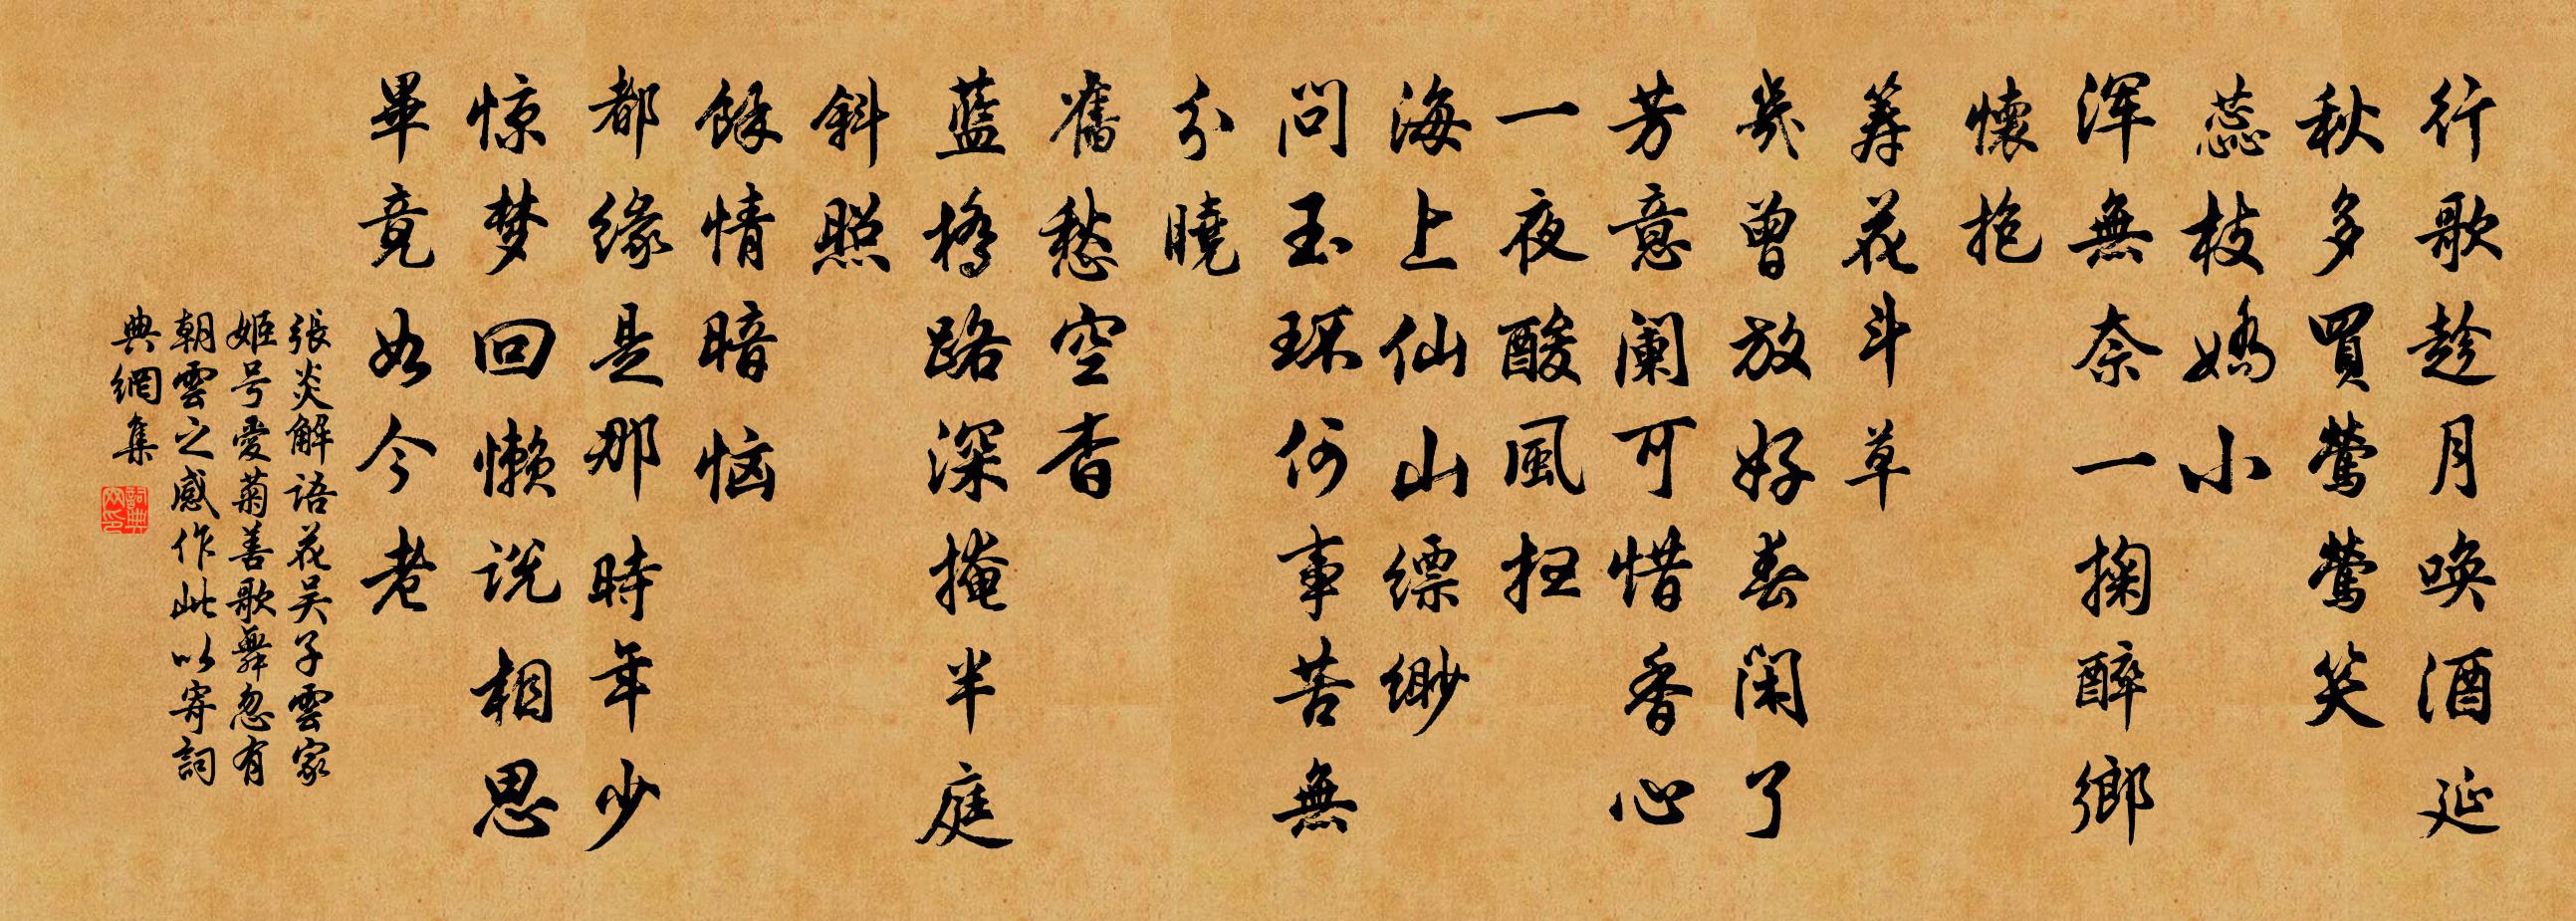 行歌趁月唤酒延
秋多買鶯鶯笑
蕊枝嬌小
浑無奈一掬醉鄉
懷抱
筭花斗草
幾曾放好春闲了
芳意阑可惜香心
一夜酸風扫
海上仙山缥缈
问玉环何事苦無
分曉
舊愁空杳
藍橋路深掩半庭
斜照
餘情暗恼
都缘是那時年少
惊梦回懒说相思
畢竟如今老
張炎解語花吴子雲家
姬号愛菊善歌舞忽有
朝雲之感作此以寄詞
典網集